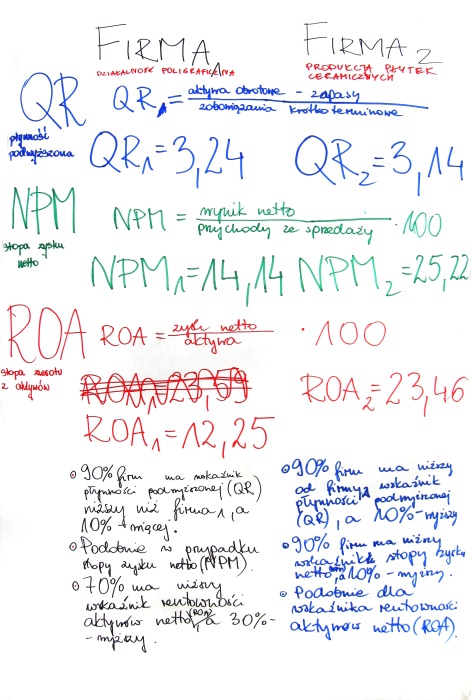 FIRMA 1
DZIAŁALNOŚĆ POLIGRAFICZNA
FIRMA 2
PRODUKCJA PŁYTEK
CERAMICZNYCH
QR
płynność
podwyższona
QR1 = aktywa obrotowe - zapasy
zobowiązania krótkoterminowe
QR1 = 3,24
QR2 = 3,14
NPM
stopa zysku
netto
NPM = wynik netto
przychody ze sprzedaży · 100
NPM1 = 14,14
NPM2 = 25,22
ROA
stopa zwrotu
z aktywów
ROA = zysk netto
aktywa · 100
ROA1 = 23,59
ROA2 = 23,46
ROA1 = 12,25
90% firm ma wskaźnik
płynności podwyższonej (QR)
niższy niż firma 1, a
10% - więcej.
Podobnie w przypadku
stopy zysku netto (NPM).
70% ma niższy
wskaźnik rentowności
aktywów netto (ROA), a 30% -
- wyższy.
90% firm ma niższy
od firmy 2 wskaźnik
płynności podwyższonej
(QR), a 10% - wyższy
90% firm ma niższy
wskaźnik stopy zysku
netto, a 10% - wyższy.
Podobnie dla
wskaźnika rentowności
aktywów netto (ROA).